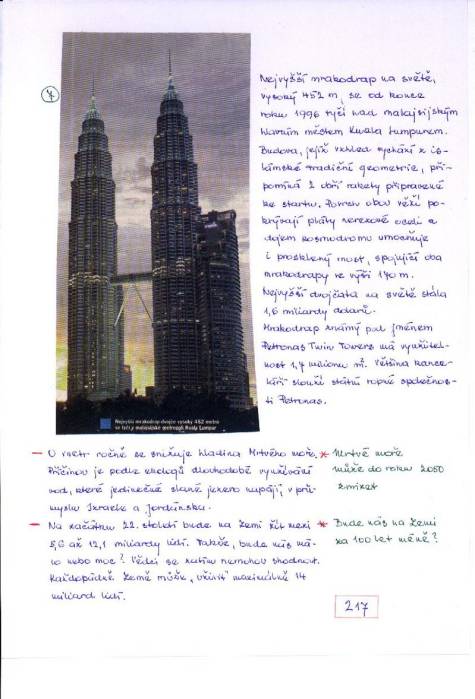 4
Nejvyšší mrakodrap na světě,
vysoký 452 m, se od konce
roku 1996 tyčí nad malajsijským
hlavním městem Kuala Lumpurem.
Budova, jejíž vzhled vychází z is-
lámské tradiční geometrie, při-
pomíná 2 obří rakety připravené
ke startu. Povrch obou věží po-
krývají pláty nerezové oceli a
dojem kosmodromu umocňuje
i prosklený most, spojující oba
mrakodrapy ve výši 170 m.
Nejvyšší dvojčata na světě stála
1,6 miliardy dolarů.
Mrakodrap známý pod jménem
Petronas Twin Towers má využitel-
nost 1,7 milionu m². Většina kance-
láří slouží státní ropné společnos-
ti Petronas.
Nejvyšší mrakodrap dvojče vysoký 452 metrů
se tyčí v malajsijské metropoli Kuala Lumpur
– O metr ročně se snižuje hladina Mrtvého moře.
Příčinou je podle ekologů dlouhodobé využívání
vod, které jedinečné slané jezero napájí, v prů-
myslu Izraele a Jordánska.
* Mrtvé moře
může do roku 2050
zmizet
– Na začátku 22. století bude na Zemi žít mezi
5,6 až 12,1 miliardy lidí. Takže, bude nás má-
lo nebo moc? Vědci se zatím nemohou shodnout.
Každopádně Země může „uživit" maximálně 14
miliard lidí.
* Bude nás na Zemi
za 100 let méně?
217